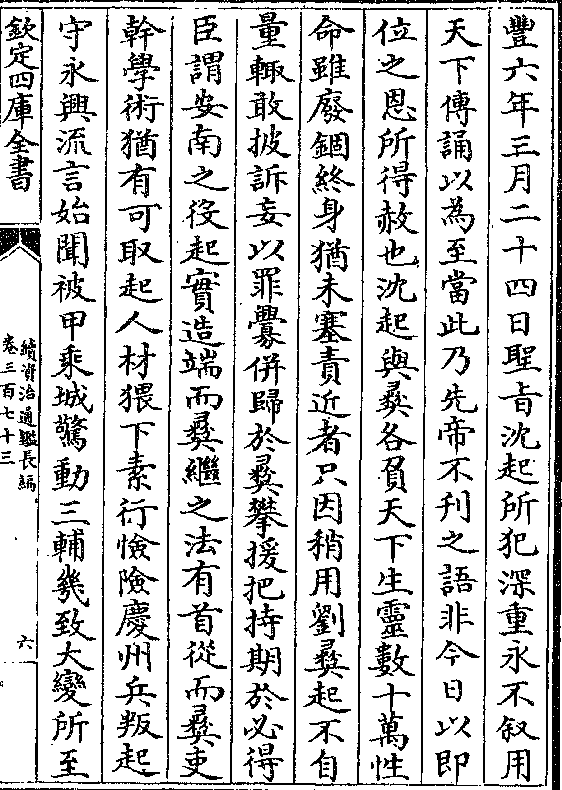 豐六年三月二十四日聖旨沈起所犯深重永不叙用
天下傳誦以為至當此乃先帝不刊之語非今日以即
位之恩所得赦也沈起與彛各負天下生靈數十萬性
命雖廢錮終身猶未塞責近者只因稍用劉彛起不自
量輙敢披訴妄以罪釁併歸於彛攀援把持期於必得
臣謂安南之役起實造端而彛繼之法有首從而彛吏
幹學術猶有可取起人材猥下素行憸險慶州兵叛起
守永興流言始聞被甲乘城驚動三輔幾致大變所至
欽定四庫全書
續資治通鑑長編
卷三百七十三
六